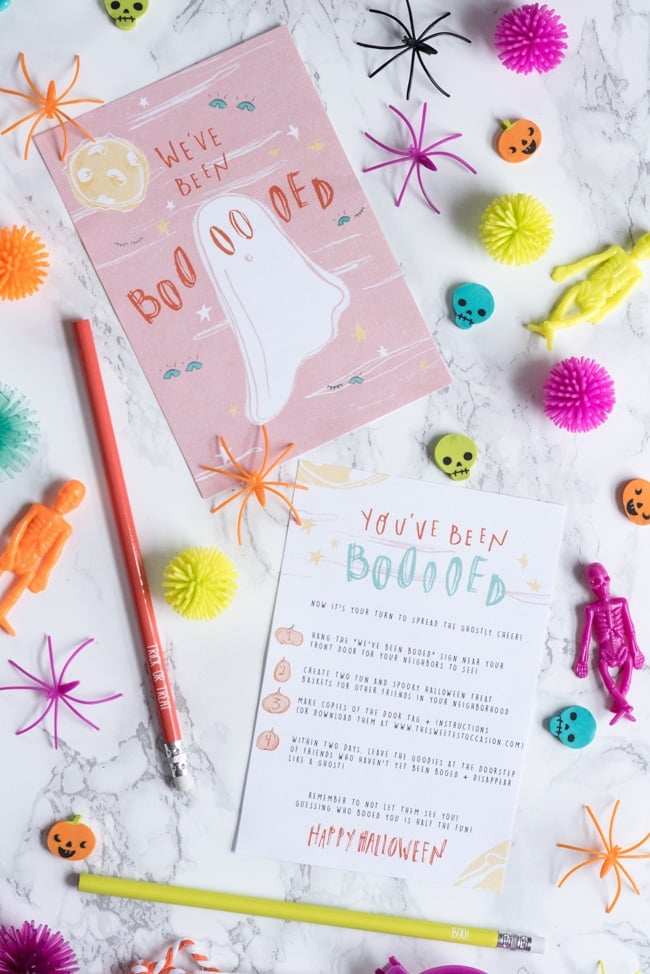 WE'VE
BEEN
BOOOOOED
YOU'VE BEEN
BOOOOED
NOW IT'S YOUR TURN TO SPREAD THE GHOSTLY CHEER!
1 HANG THE "WE'VE BEEN BOOED" SIGN NEAR YOUR
FRONT DOOR FOR YOUR NEIGHBORS TO SEE!
2 CREATE TWO FUN AND SPOOKY HALLOWEEN TREAT
BASKETS FOR OTHER FRIENDS IN YOUR NEIGHBORHOOD
3 MAKE COPIES OF THE DOOR TAG + INSTRUCTIONS
(OR DOWNLOAD THEM AT WWW.THESWEETESTOCCASION.COM)
4 WITHIN TWO DAYS, LEAVE THE GOODIES AT THE DOORSTEP
OF FRIENDS WHO HAVEN'T YET BEEN BOOED + DISAPPEAR
LIKE A GHOST!
REMEMBER TO NOT LET THEM SEE YOU!
GUESSING WHO BOOED YOU IS HALF THE FUN!
HAPPY HALLOWEEN
TRICK OR TREAT
BOO!